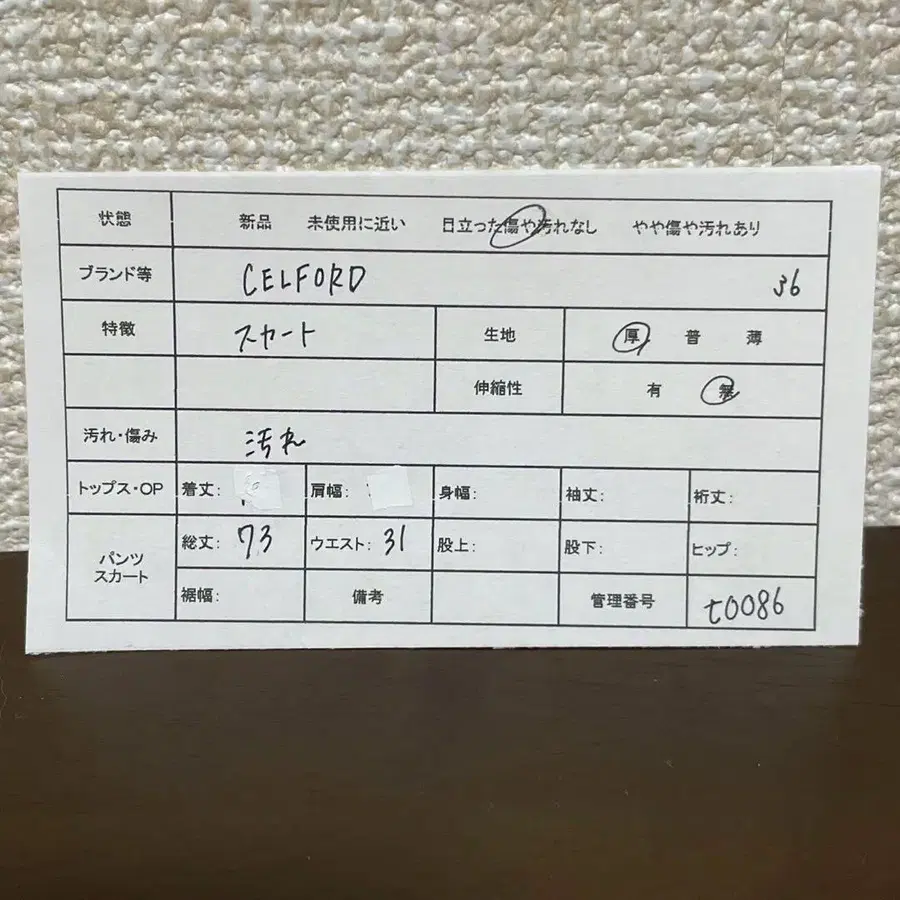 状態 新品 未使用に近い 目立った傷や汚れなし やや傷や汚れあり
ブランド等 CELFORD 36
特徴 スカート 生地 厚 普 薄
伸縮性 有 無
汚れ・傷み 汚れ
トップス・OP 着丈: 肩幅: 身幅: 袖丈: 裄丈:
パンツ スカート 総丈: 73 ウエスト: 31 股上: 股下: ヒップ:
裾幅: 備考 管理番号 t0086